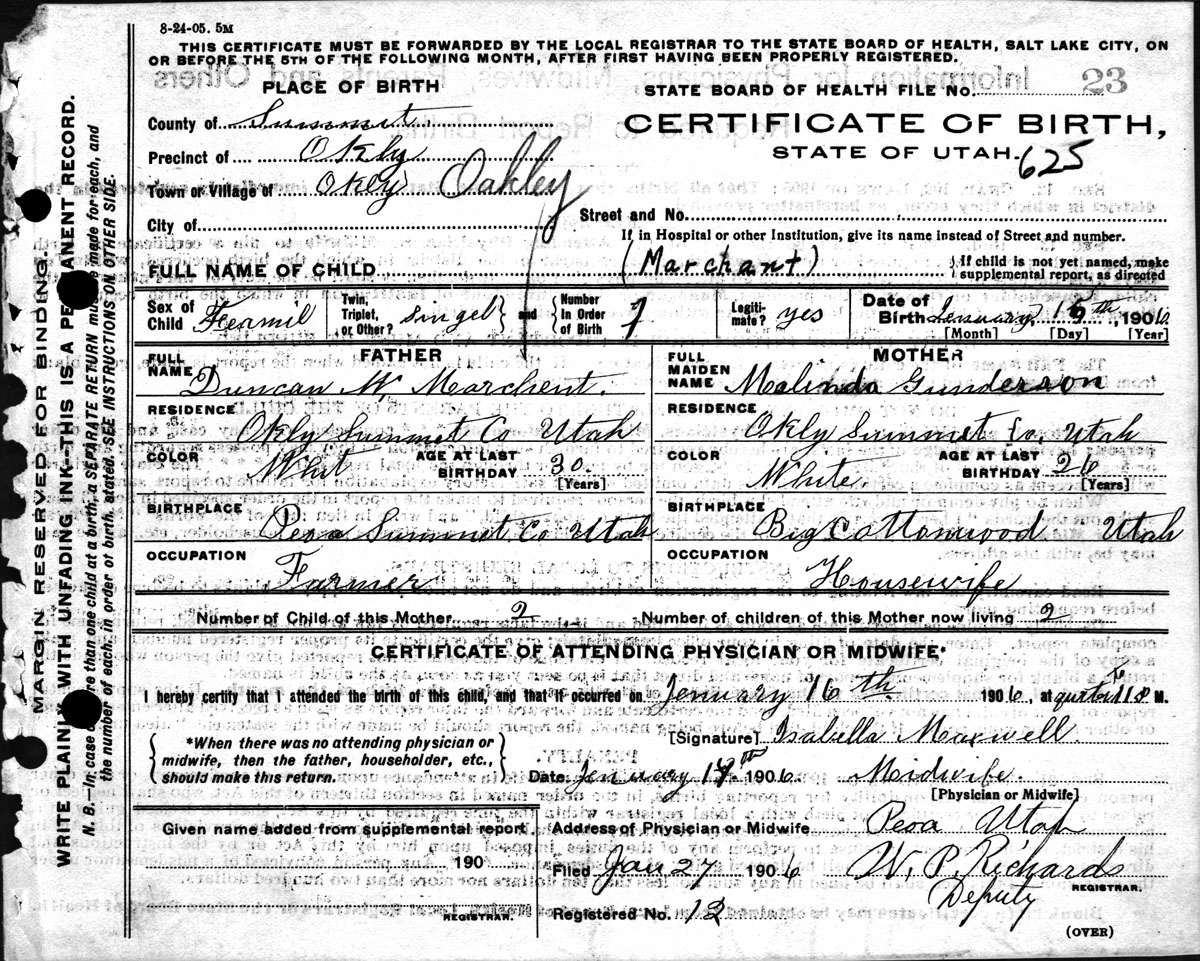 8-24-05. 5M
THIS CERTIFICATE MUST BE FORWARDED BY THE LOCAL REGISTRAR TO THE STATE BOARD OF HEALTH, SALT LAKE CITY, ON
OR BEFORE THE 5TH OF THE FOLLOWING MONTH, AFTER FIRST HAVING BEEN PROPERLY REGISTERED.
PLACE OF BIRTH
STATE BOARD OF HEALTH FILE No. 23
County of Summet
CERTIFICATE OF BIRTH,
Precinct of Okly
STATE OF UTAH. 625
Town or Village of Okly Oakley
City of
Street and No.
If in Hospital or other Institution, give its name instead of Street and number.
FULL NAME OF CHILD (Marchant) {If child is not yet named, make supplemental report, as directed
Sex of Child Feamil Twin, Triplet, or Other? Singel } and { Number In Order of Birth Legitimate? yes Date of Birth Jenuary 1906
[Month] [Day] [Year]
FATHER
MOTHER
FULL NAME Duncan M. Marchent.
FULL MAIDEN NAME Malinda Gunderson
RESIDENCE Okly Summet Co Utah
RESIDENCE Okly Summet Co, Utah
COLOR Whit AGE AT LAST BIRTHDAY 30 [Years]
COLOR White. AGE AT LAST BIRTHDAY 26 [Years]
BIRTHPLACE Peoa Summet Co Utah
BIRTHPLACE Big Cottonwood Utah
OCCUPATION Farmer
OCCUPATION Housewife
Number of Child of this Mother 2 Number of children of this Mother now living 2
CERTIFICATE OF ATTENDING PHYSICIAN OR MIDWIFE*
I hereby certify that I attended the birth of this child, and that if occurred on Jenuary 16th 1906, at M.
{*When there was no attending physician or midwife, then the father, householder, etc., should make this return.}
[Signature] Isabella Maxwell.
Date Jenuary 1906 Midwife.
[Physician or Midwife]
Given name added from supplemental report
190
REGISTRAR.
Address of Physician or Midwife Peoa Utah
Filed Jan 27 1906 W. P. Richards
REGISTRAR.
Deputy
Registered No. 12
(OVER)
MARGIN RESERVED FOR BINDING.
WRITE PLAINLY WITH UNFADING INK—THIS IS A PERMANENT RECORD.
N. B.—In case of more than one child at a birth, a SEPARATE RETURN must be made for each, and
the number of each, in order of birth, stated. SEE INSTRUCTIONS ON OTHER SIDE.